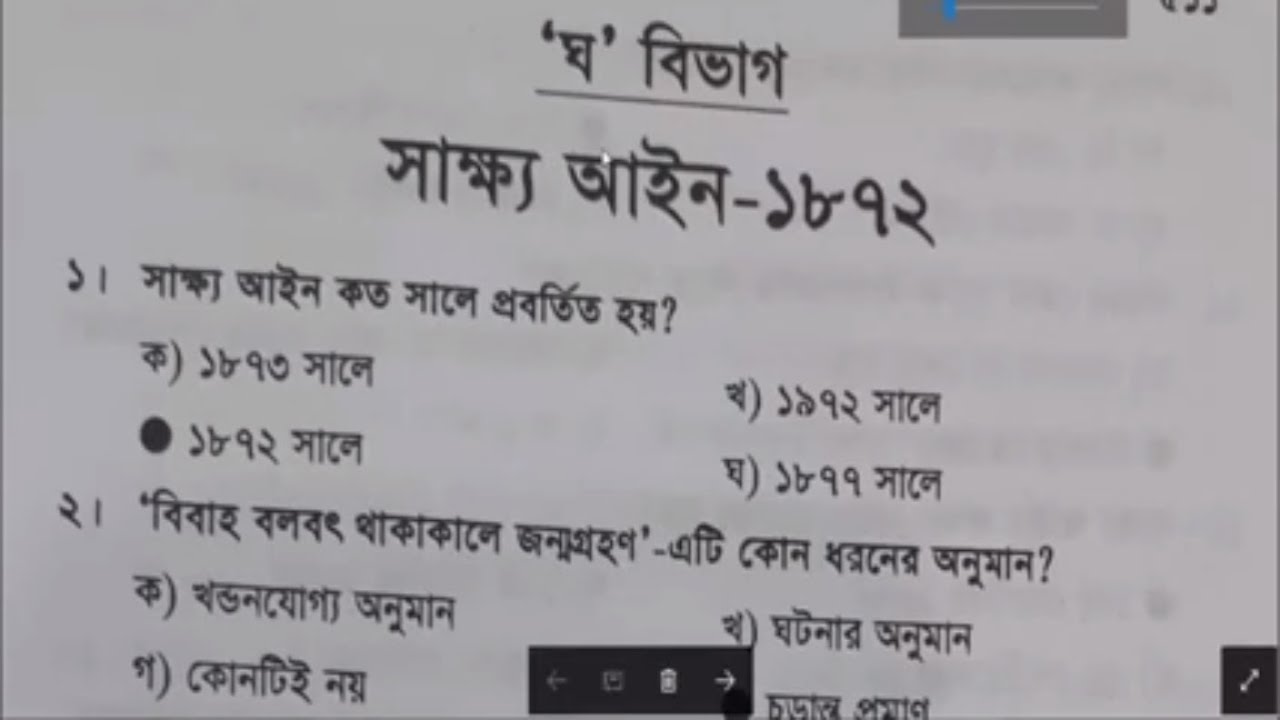 ৫১১
‘ঘ’ বিভাগ
সাক্ষ্য আইন-১৮৭২
১। সাক্ষ্য আইন কত সালে প্রবর্তিত হয়?
ক) ১৮৭৩ সালে
খ) ১৯৭২ সালে
১৮৭২ সালে
ঘ) ১৮৭৭ সালে
২। ‘বিবাহ বলবৎ থাকাকালে জন্মগ্রহণ’-এটি কোন ধরনের অনুমান?
ক) খন্ডনযোগ্য অনুমান
খ) ঘটনার অনুমান
গ) কোনটিই নয়
চূড়ান্ত প্রমাণ